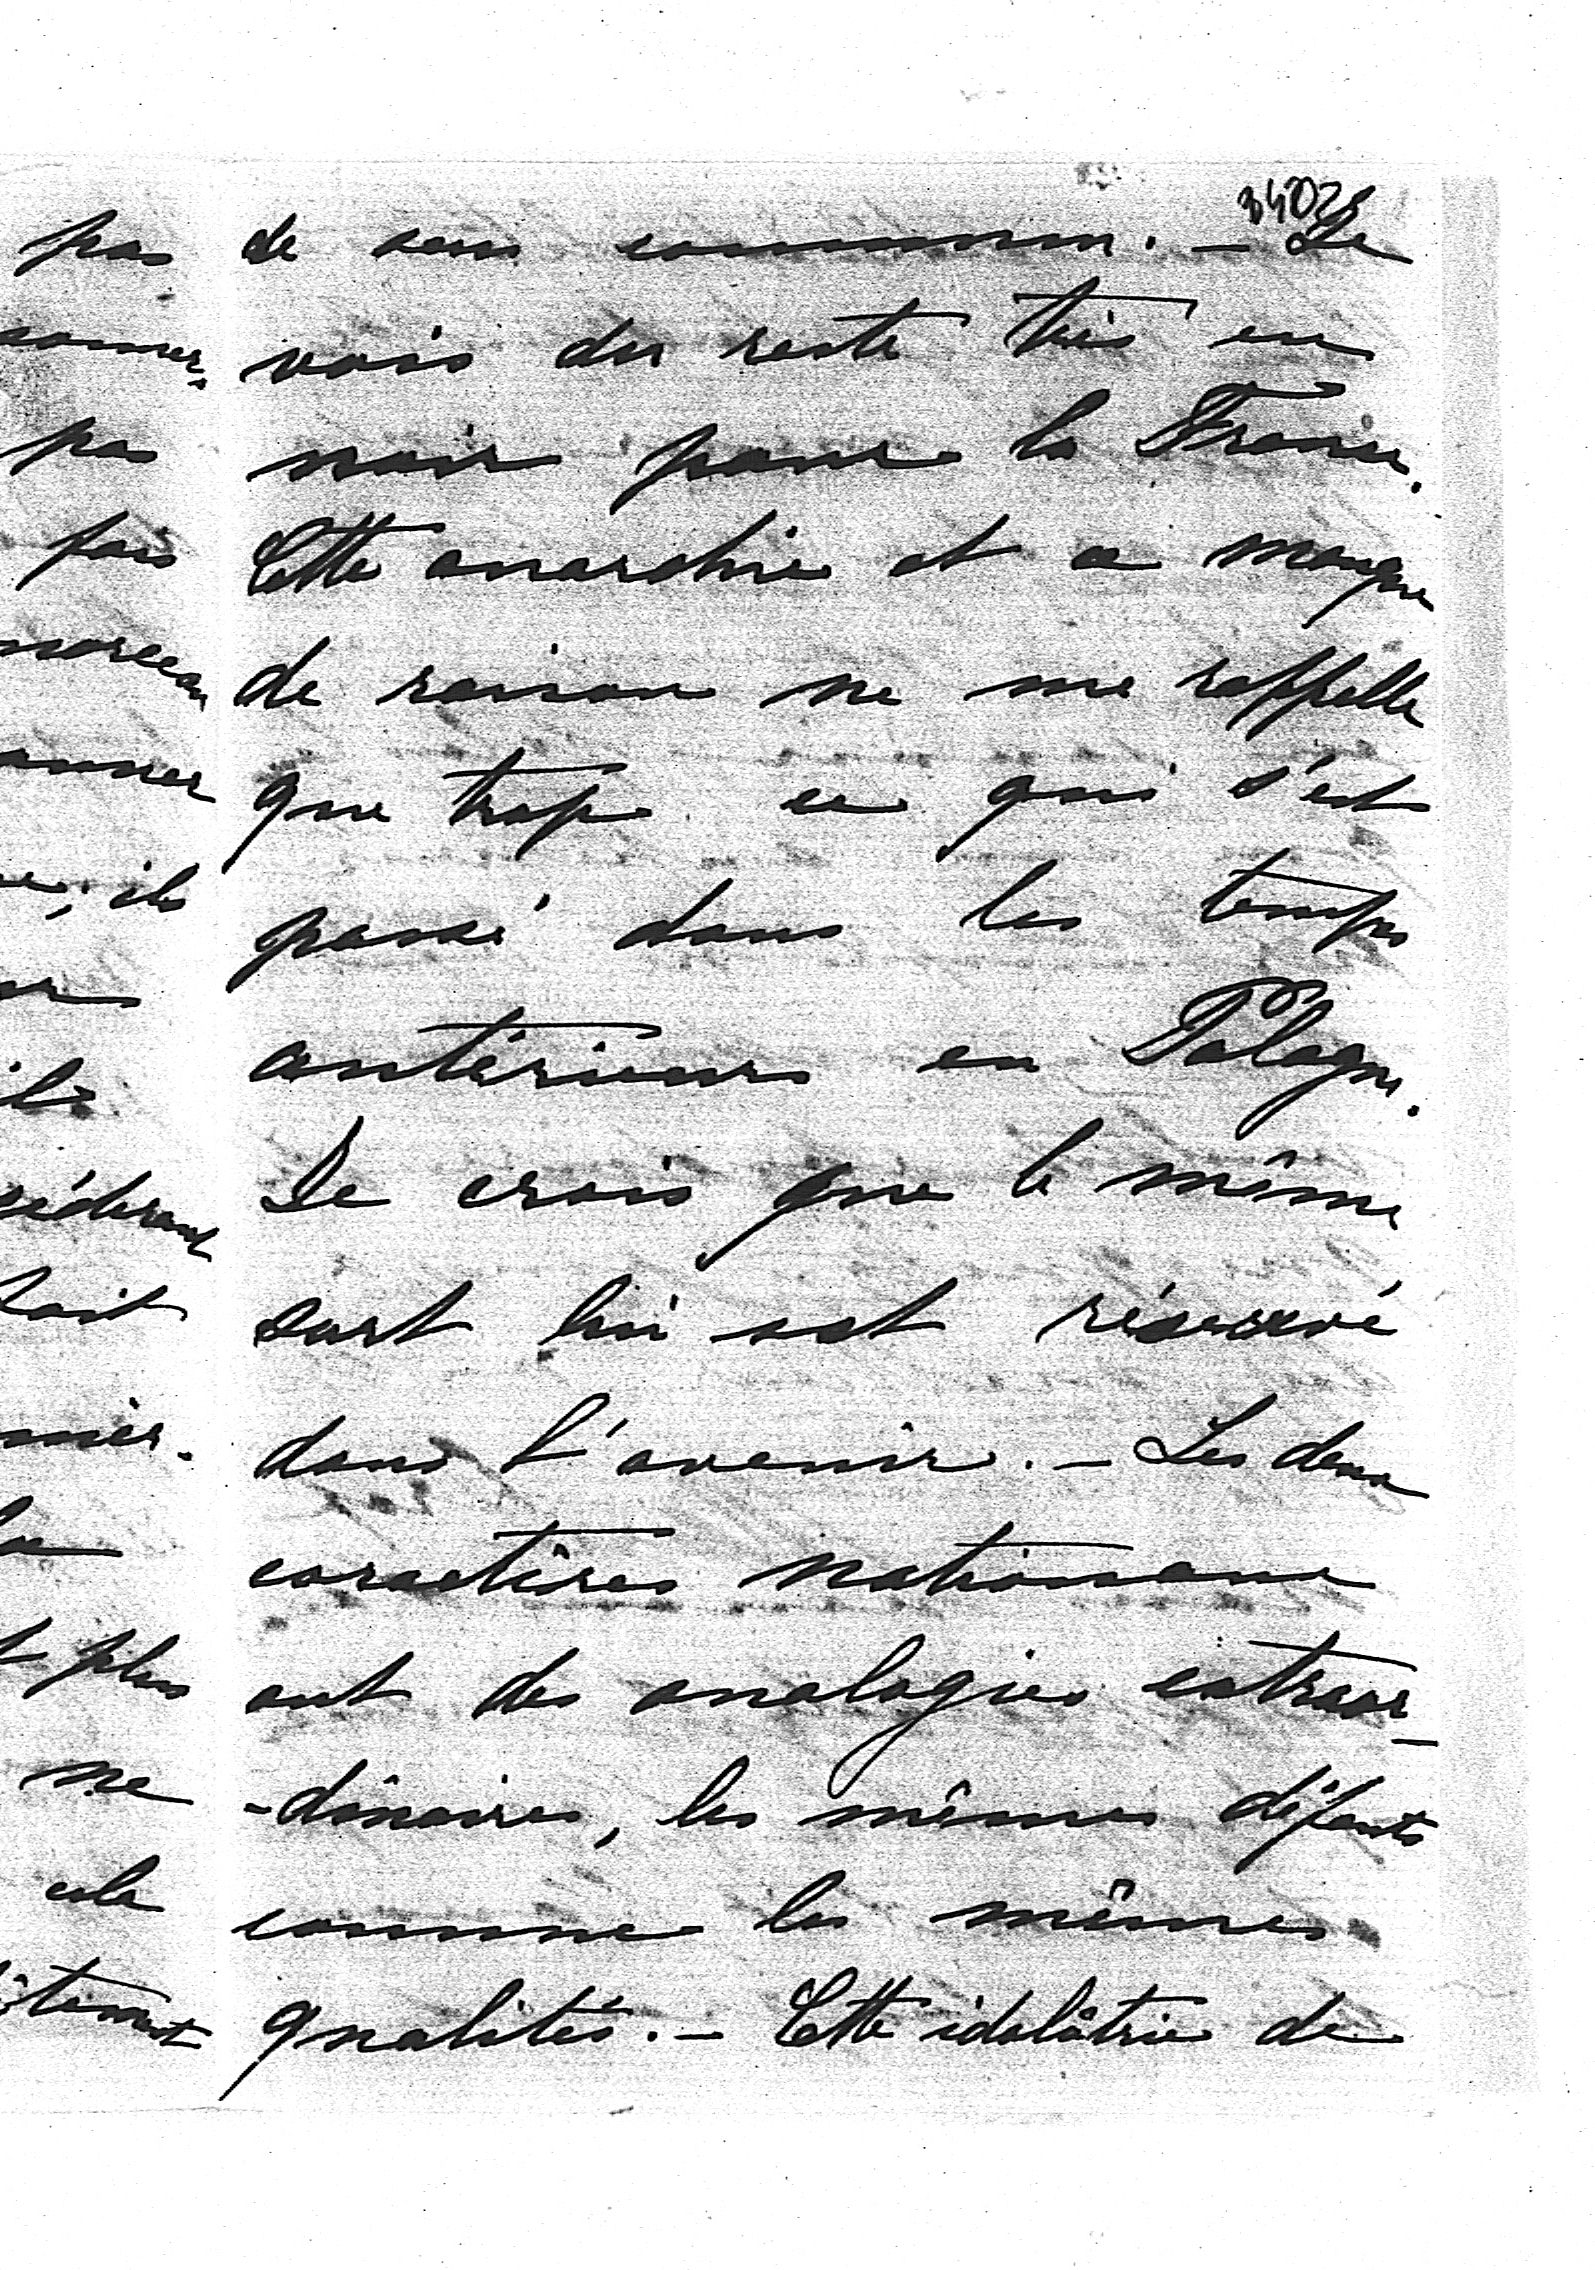 de sens commun. – Je
vois du reste très en
noir pour la France.
Cette anarchie et ce manque
de raison ne me rappelle
que trop ce qui s'est
passé dans les temps
antérieurs en Pologne.
Je crois que le même
sort lui est réservé
dans l'avenir. – Les deux
caractères nationaux
ont des analogies extraor-
-dinaires, les mêmes défauts
comme les mêmes
qualités. – Cette idolâtrie de
pas
pas
fois
morceau
ils
plus
ne
cela